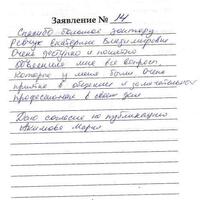 Заявление № 14
Спасибо большой доктору
Ревчук Екатерине Владимировне
Очень доступно и понятно
объяснила мне все вопросы
которые у меня были. Очень
приятна в общении и замечательный
профессионал в своём деле
Даю согласие на публикацию
Акимова Мария